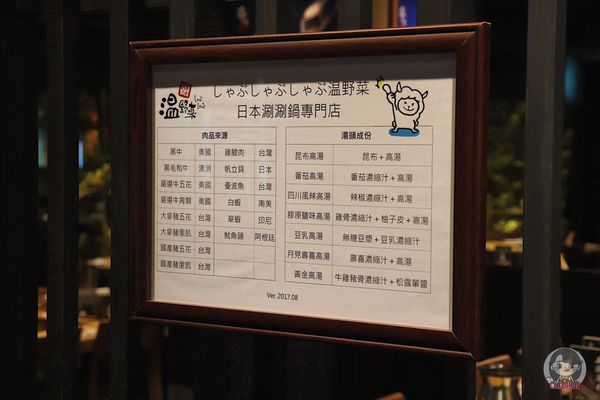 しゃぶしゃぶしゃぶ温野菜
温野菜
日本涮涮鍋專門店
肉品來源
黑牛 美國 雞腿肉 台灣
黑毛和牛 澳洲 帆立貝 日本
嚴選牛五花 美國 臺波魚 台灣
嚴選牛肩胸 美國 白蝦 南美
大麥豬五花 台灣 草蝦 印尼
大麥豬里肌 台灣 魷魚頭 阿根廷
國產豬五花 台灣
國產豬里肌 台灣
湯頭成份
昆布高湯 昆布+高湯
番茄高湯 番茄濃縮汁+高湯
四川風辣高湯 辣椒濃縮汁+高湯
膠原鹽味高湯 雞骨濃縮汁+柚子皮+高湯
豆乳高湯 無糖豆漿+豆乳濃縮汁
月見壽喜高湯 壽喜濃縮汁+高湯
黃金高湯 牛雞豬骨濃縮汁+松露葷醬
Ver. 2017.08